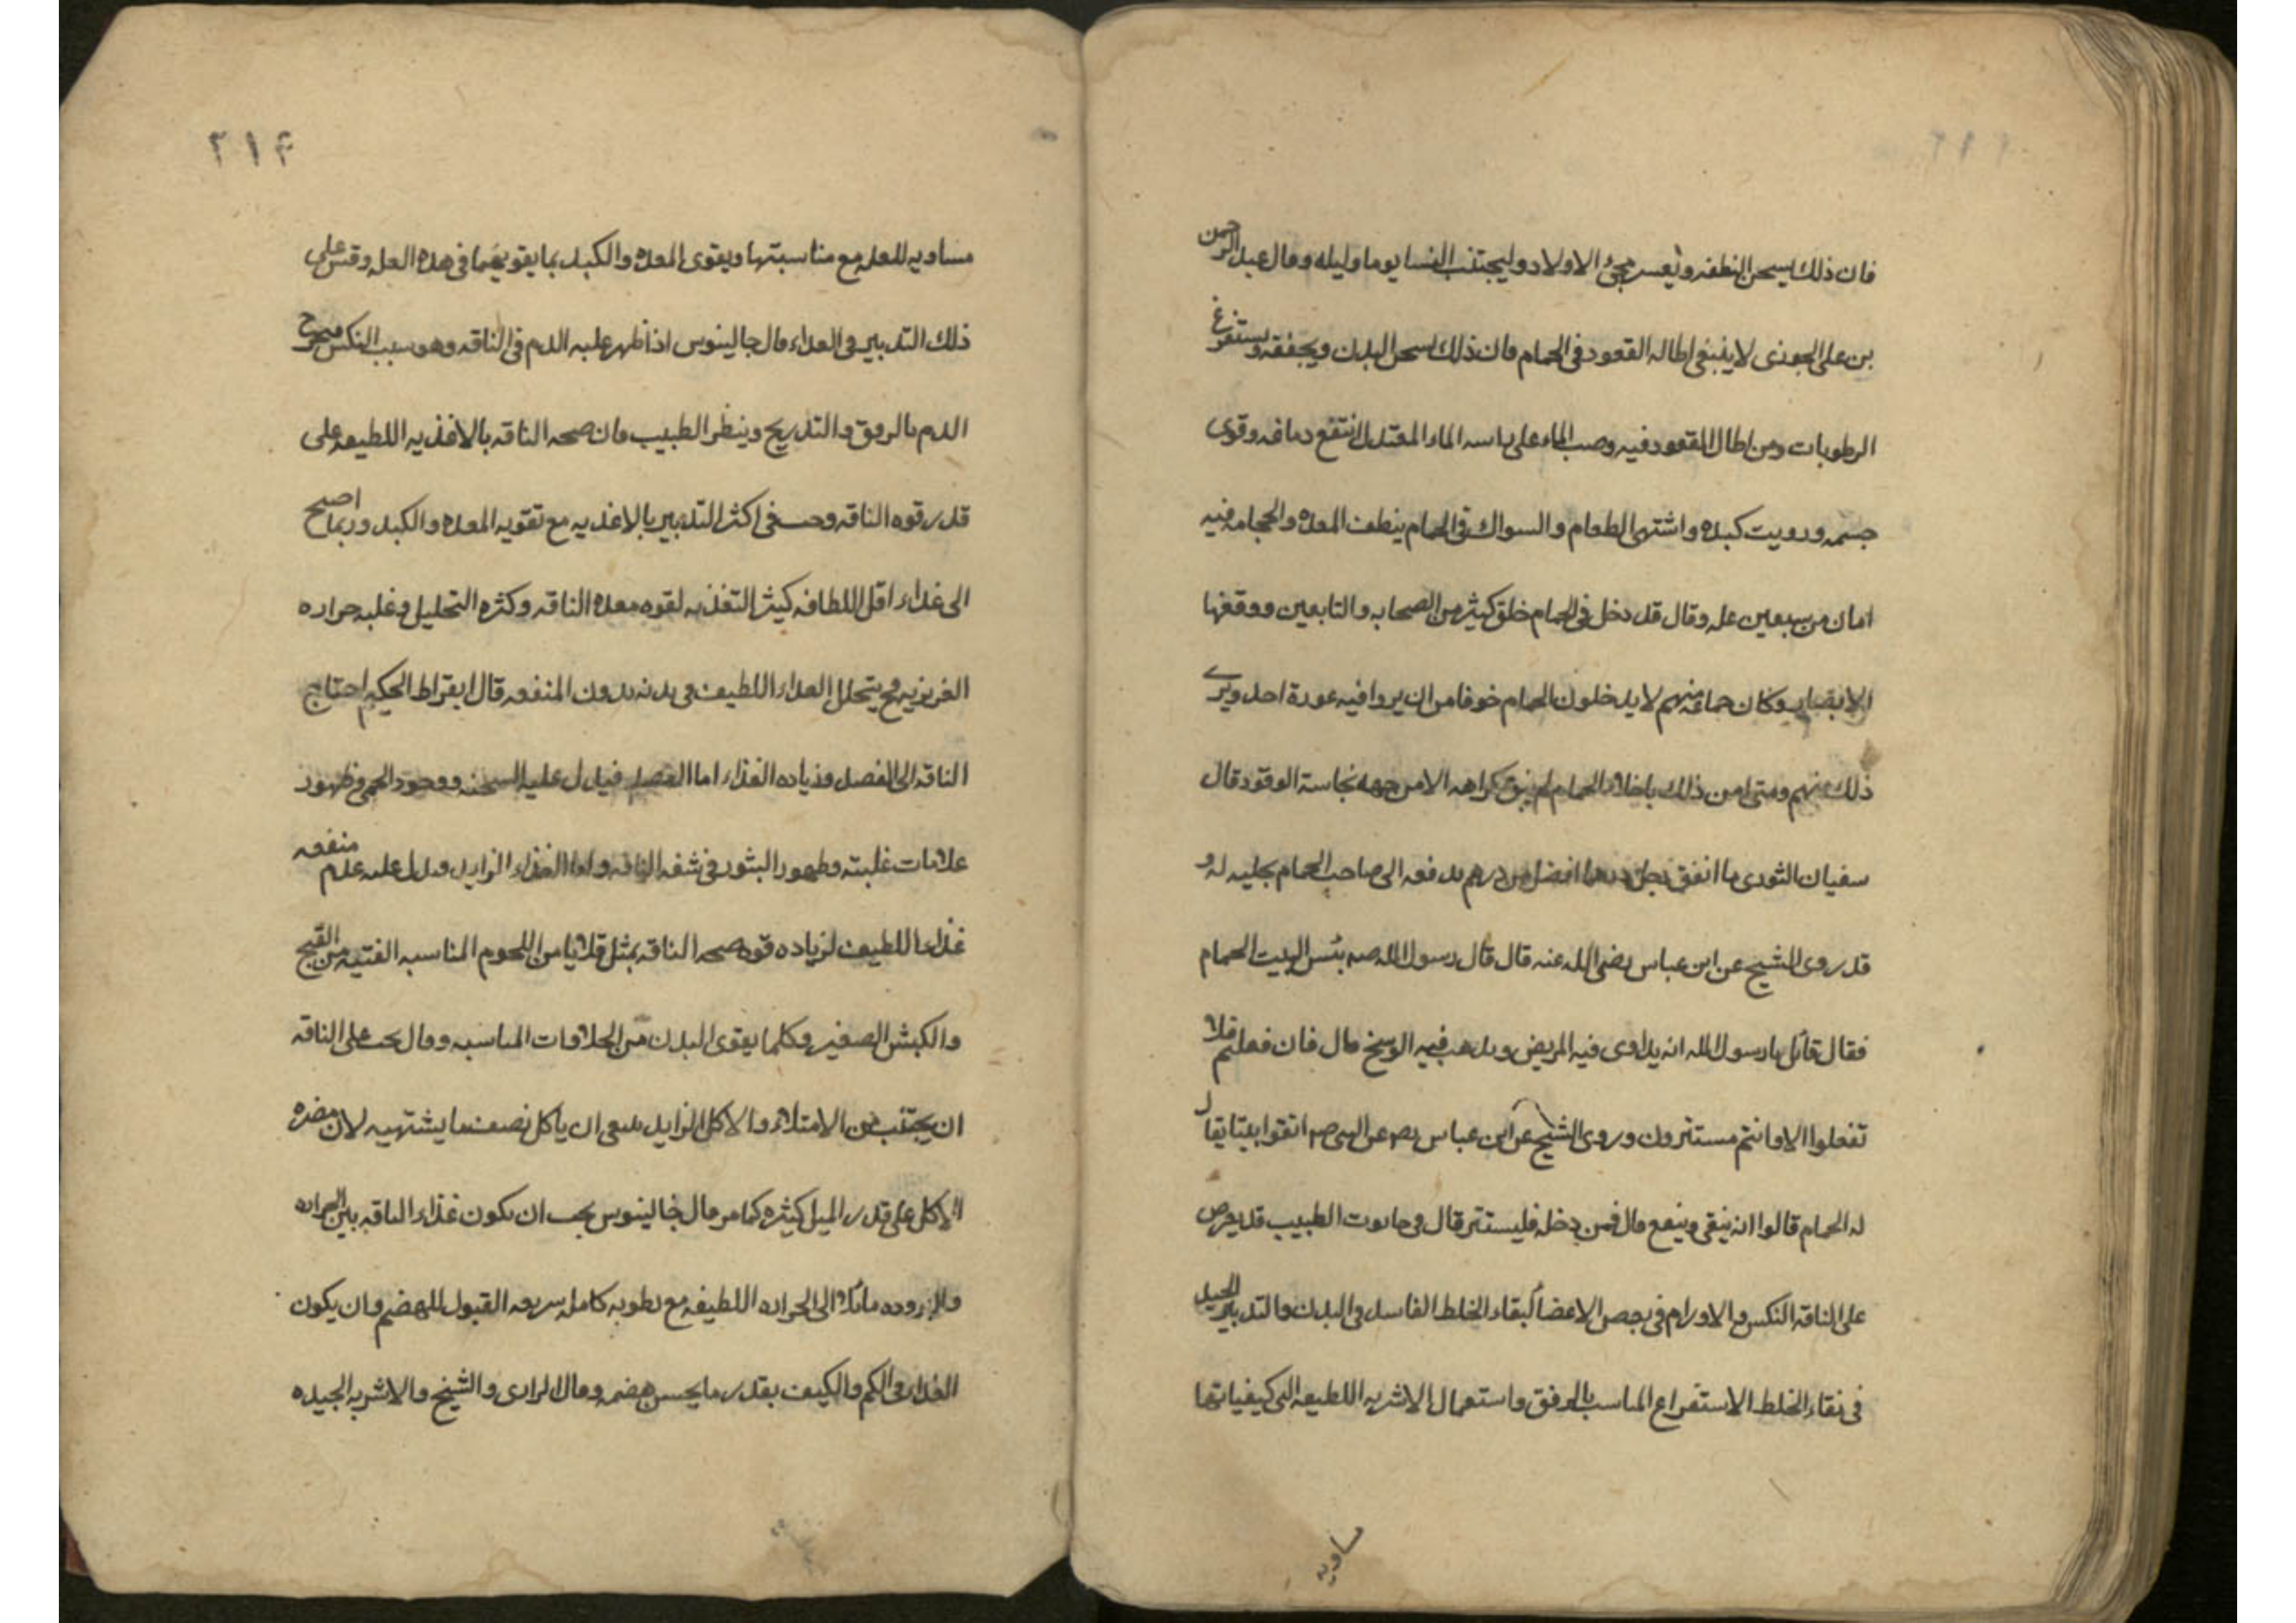 فان ذلك يسخن النطفه ويعسر مجئ الاولاد وليجتنب النسا يوما وليله وقال عبد الرحمن
بن على الجوزى لا ينبغى اطاله القعود فى الحمام فان ذلك يسخن البدن ويجففه ويستفرغ
الرطوبات ومن اطال القعود فيه وصب الماء على راسه الماء المعتدل انتفع دماغه وقوى
جسمه ورويت كبده واشتهى الطعام والسواك فى الحمام ينظف المعده والحجامه فيه
امان من سبعين عله وقال قد دخل فى الحمام خلق كثير من الصحابه والتابعين ووقفها
الابصار وكان جماعه منهم لا يدخلون الحمام خوفا من ان يروا فيه عورة احد ويرى
ذلك منهم ومتى امن ذلك باخلاء الحمام لم يبق كراهه الا من جهه نجاسة الوقود قال
سفيان الثورى ما انفق رجل درهما افضل من درهم يدفعه الى صاحب الحمام يخليه له و
قد روى الشيخ عن ابن عباس رضى الله عنه قال قال رسول الله صه بئس البيت الحمام
فقال قائل يا رسول الله انه يداوى فيه المريض ويذهب فيه الوسخ قال فان فعلتم فلا
تفعلوا الا وانتم مستترون وروى الشيخ عن ابن عباس رضه عن النبى صه اتقوا بيتا يقال
له الحمام قالوا انه ينقى وينفع قال فمن دخله فليستتر قال فى حانوت الطبيب قد يعرض
على الناقه النكس والاورام فى بعض الاعضا لبقاء الخلط الفاسد فى البدن والتدبير الجيد
فى نقاء الخلط الاستفراغ المناسب بالرفق واستعمال الاشربه اللطيفه التى كيفياتها
مساويه
٢١٤
مساويه للعله مع مناسبتها ويقوى المعده والكبد بما يقويهما فى هذه العله وقس على
ذلك التدبير فى الغذاء قال جالينوس اذا ظهر غلبه الدم فى الناقه وهو سبب النكس فيخرج
الدم بالرفق والتدريج وينظر الطبيب فان صحه الناقه بالاغذيه اللطيفه على
قدر قوه الناقه وحسب فى اكثر التدبير بالاغذيه مع تقويه المعده والكبد وربما اصبح
الى غذاء اقل اللطافه كثير التغذيه لقوه معده الناقه وكثره التحليل وغلبه حراره
الغريزيه فح يتحلل الغذاء اللطيف فى بدنه بدون المنفعه قال ابقراط الحكيم احتاج
الناقه الى الفصد وزياده الغذاء اما الفصد فيدل عليه السحنه ووجود الحمى وظهور
علامات غلبته وظهور البثور فى شفه الناقه واما الغذاء الزايد ويدل عليه عدم منفعه
غذاء اللطيف لزياده قوه صحه الناقه بمثل قلايا من اللحوم المناسبه الفتيه من القبج
والكبش الصغير وكلما يقوى البدن من الحلاوات المناسبه وقال يجب على الناقه
ان يجتنب من الامتلاء والاكل الزايد ينبغى ان ياكل نصف ما يشتهيه لان مضره
الاكل على قدر الميل كثيره كما مر قال جالينوس يجب ان يكون غذاء الناقه بين الحراره
والبروده مائلا الى الحراره اللطيفه مع رطوبه كامله سريعه القبول للهضم وان يكون
الغذاء فى الكم والكيف بقدر ما يحسن هضمه وقال الرازى والشيخ والاشربه الجيده